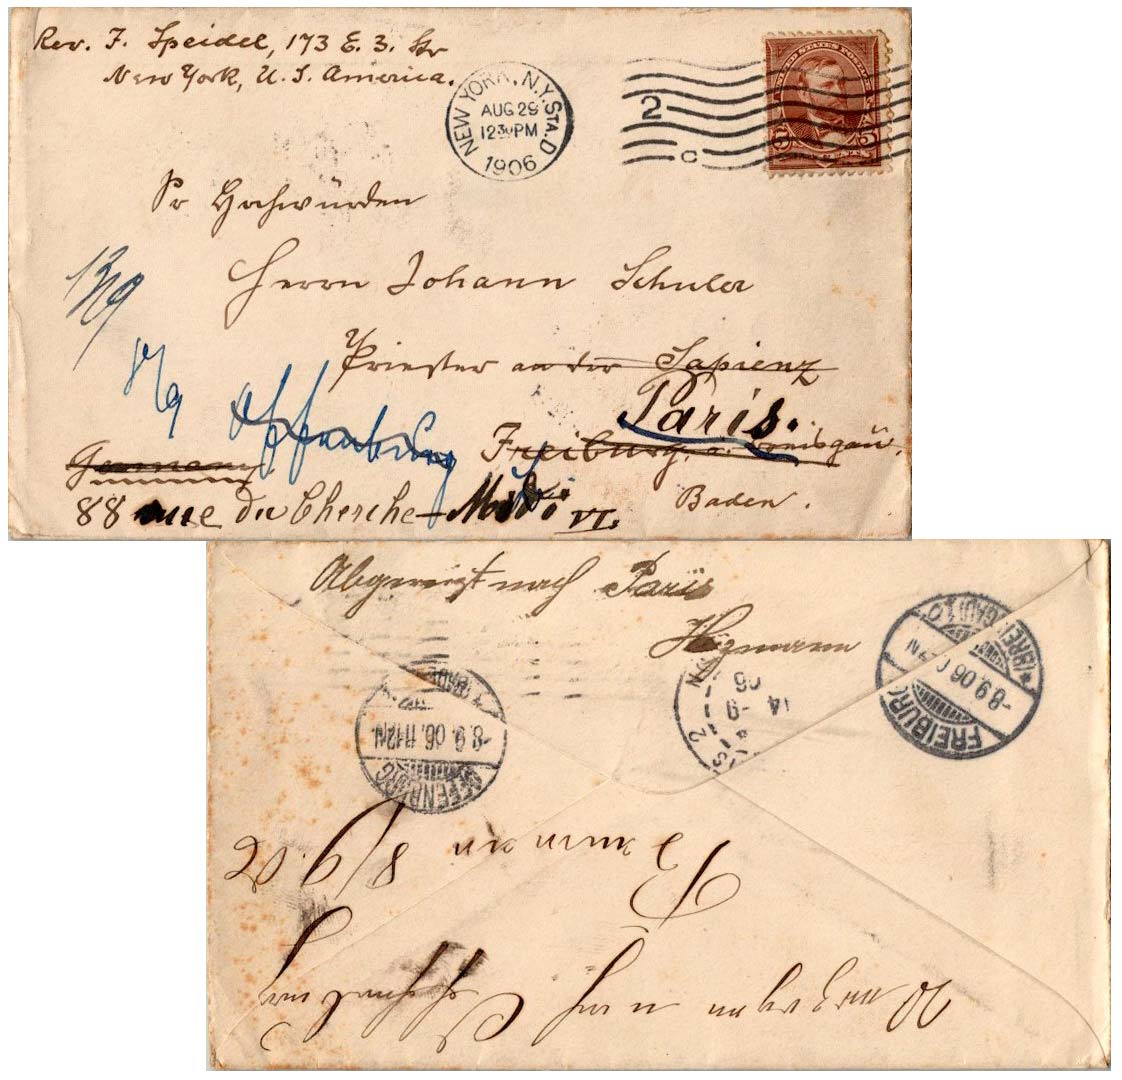 Rev. F. Speidel, 173 E. 3. Str
New York, U. S. America.
NEW YORK, N.Y. STA. D
AUG 29
12 30 PM
1906
2
C
UNITED STATES POSTAGE
5 5
Sr Hochwürden
Herrn Johann Schuler
Priester an der Sapienz
Paris.
Freiburg, Breisgau.
Offenburg
Germany
Baden.
88 rue du Cherche-Midi VI.
Abgereist nach Paris
FREIBURG (BREISGAU)
8.9.06
OFFENBURG
8.9.06. 11-12N
14 - 9
06
Verzogen nach Offenburg
8/9 06